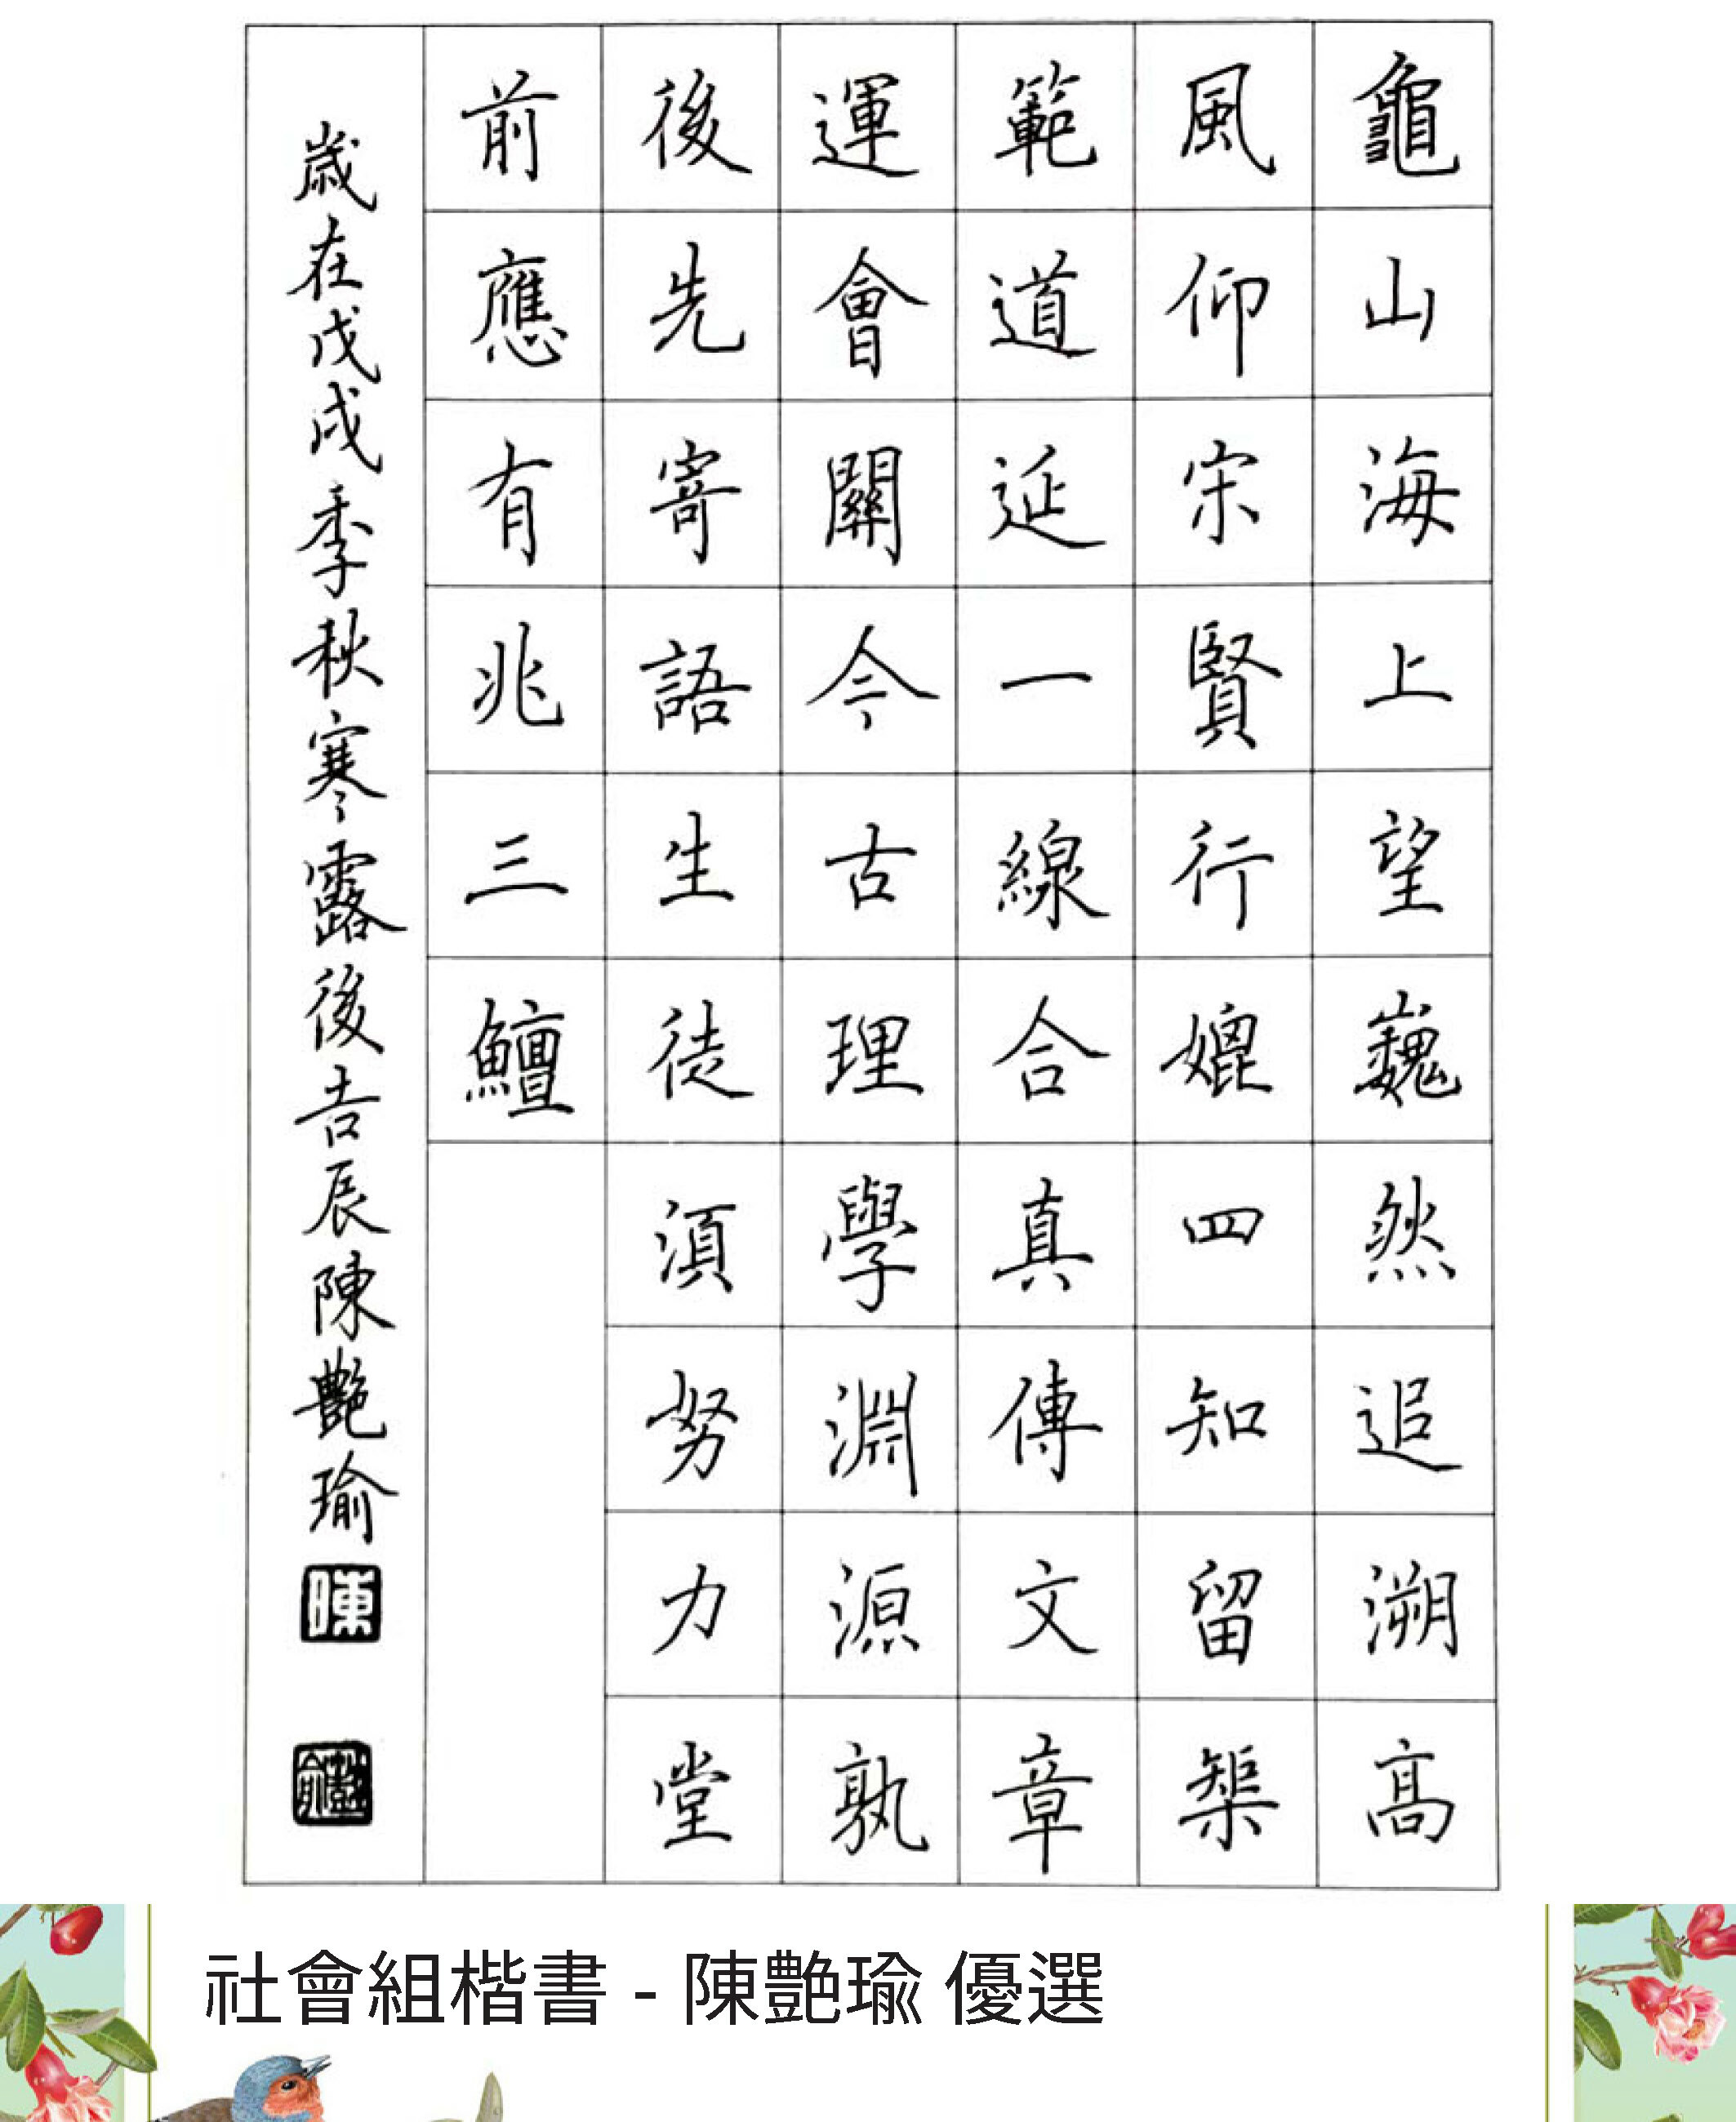 龜山海上望巍然追溯高
風仰宋賢行媲四知留榘
範道延一線合真傳文章
運會關今古理學淵源孰
後先寄語生徒須努力堂
前應有兆三鱣
歲在戊戌季秋寒露後吉辰陳艷瑜
陳
社會組楷書 - 陳艷瑜 優選